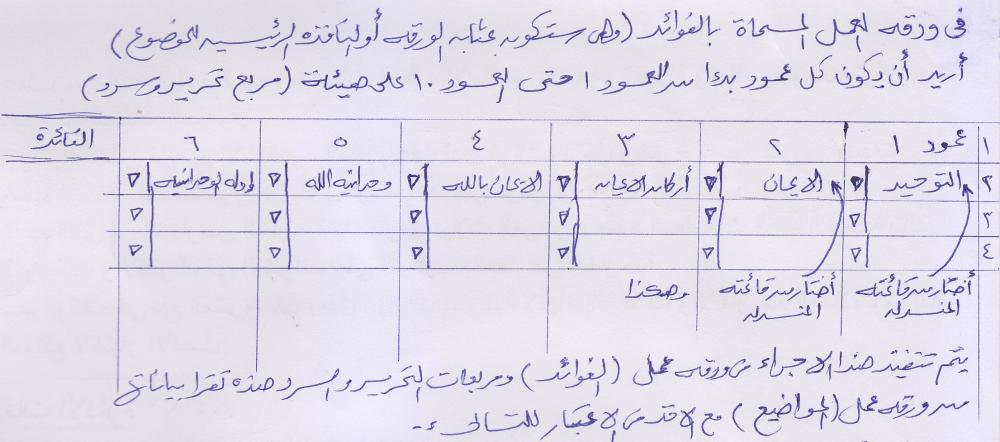 في ورقة العمل المسماة بالفوائد (وهي ستكون بمثابة الورقة أو النافذة الرئيسية للموضوع)
أريد أن يكون كل عمود بدءا من العمود ١ حتى العمود ١٠ على هيئة (مربع تحرير وسرد)
١ عمود ١ ٢ ٣ ٤ ٥ ٦ الفائدة
٢ التوحيد الايمان أركان الايمان الايمان بالله وحدانية الله أدلة الوحدانية
٣
٤
أختار من قائمته أختار من قائمته وهكذا
المنسدلة المنسدلة
يتم تنفيذ هذا الاجراء في ورقة عمل (الفوائد) ومربعات التحرير والسرد هذه تقرا بياناتها
من ورقة عمل (المواضيع) مع الاخذ في الاعتبار للتالي :-